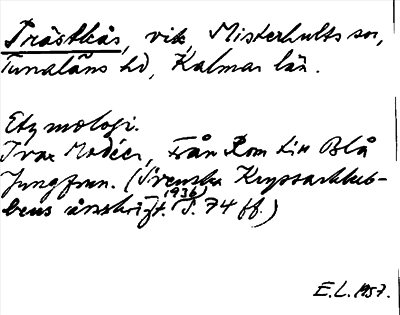 Trästkås, vik, Misterhults sn,
Tunaläns hd, Kalmar län.
Etymologi.
Ivar Modéer, Från Rom till Blå
Jungfrun. (Svenska Kryssarklub-
bens årsskrift. 1936 S. 74 ff.)
E.L. 1957.